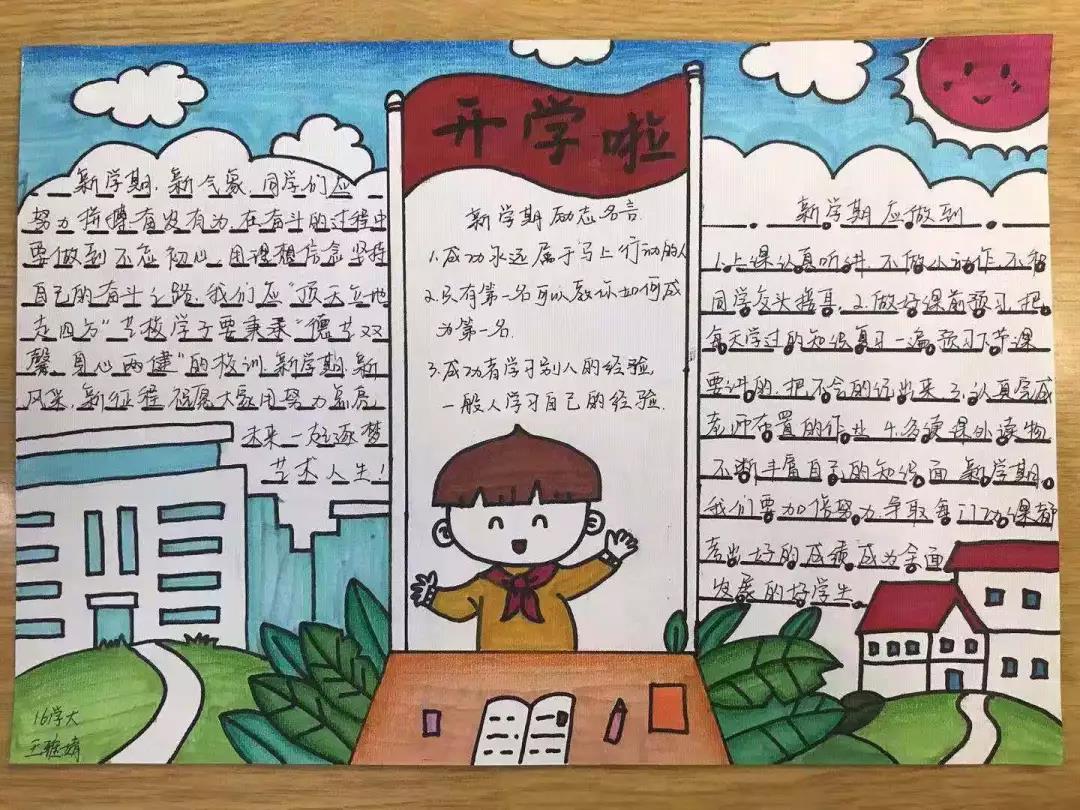 开学啦
新学期,新气象,同学们应
努力拼搏,奋发有为,在奋斗的过程中
要做到不忘初心,用理想信念坚持
自己的奋斗之路,我们应"顶天立地
走四方"艺校学子要秉承"德艺双
馨,身心两健"的校训,新学期,新
风采,新征程,祝愿大家用努力点亮
未来一起逐梦
艺术人生!
新学期励志名言
1.成功永远属于马上行动的人
2.只有第一名可以教你如何成
为第一名.
3.成功者学习别人的经验
一般人学习自己的经验.
新学期应做到
1.上课认真听讲,不做小动作,不和
同学交头接耳.2.做好课前预习,把
每天学过的知识复习一遍,预习下节课
要讲的,把不会的记出来3.认真完成
老师布置的作业4.多读课外读物
不断丰富自己的知识面,新学期,
我们要加倍努力,争取每门功课都
考出好的成绩成为全面
发展的好学生.
16学大
王雅婧